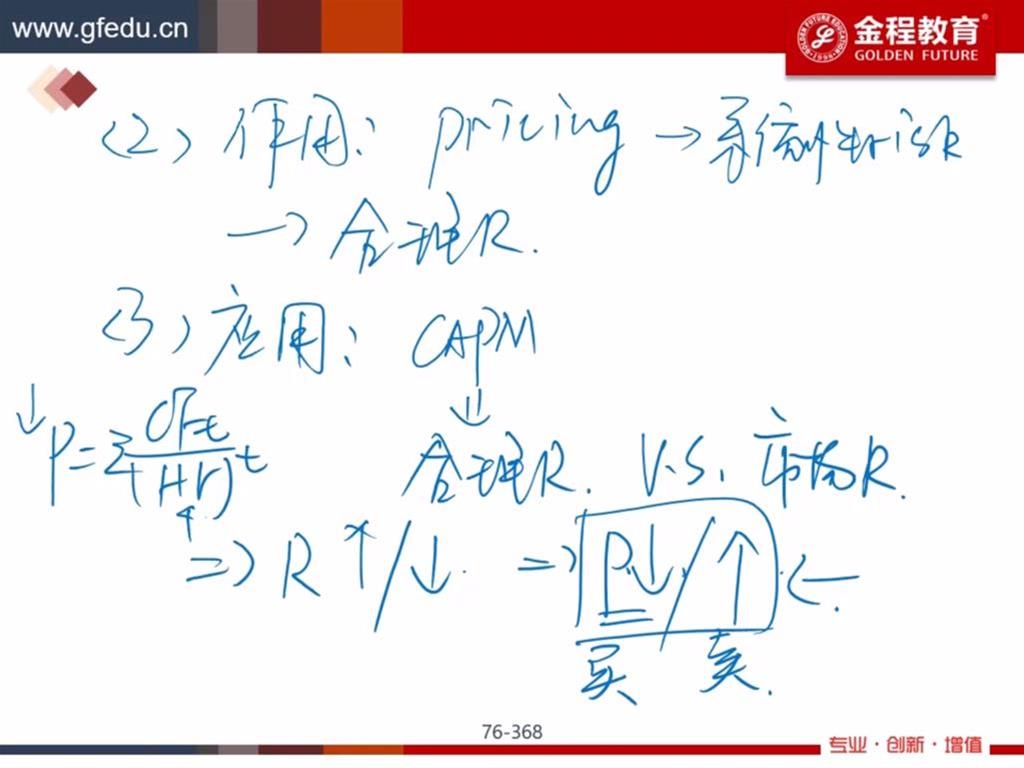 www.gfedu.cn
金程教育®
GOLDEN FUTURE
(2) 作用: pricing → 系统性risk
→ 合理R.
(3) 应用: CAPM
⇓
↓P=Σ CFt/(1+r)^t
合理R. V.S. 市场R.
⇒ R ↑/↓. ⇒ P↓/↑ ←.
买 卖.
76-368
专业·创新·增值